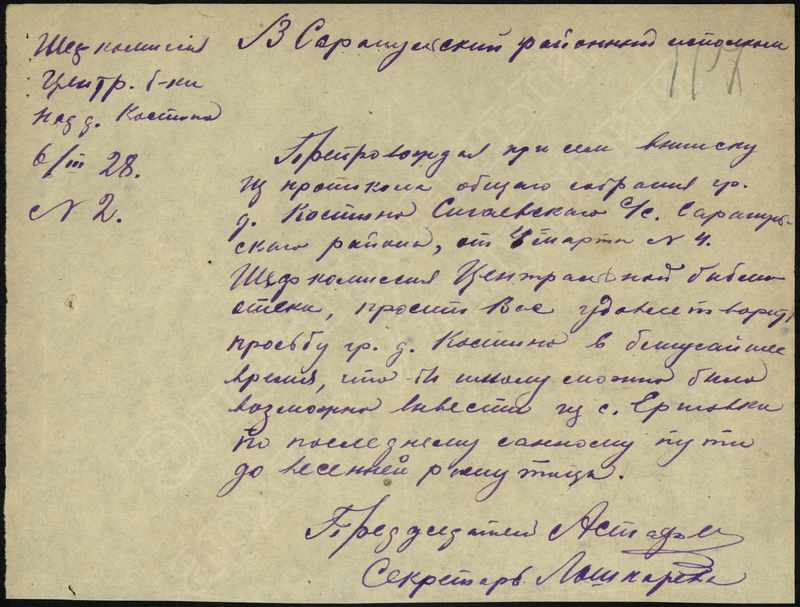 Шефкомиссия
Центр. б-ки
над д. Костино
6/III 28.
N 2.
В Сарапульский районный исполком
Препровождая при сем выписку
из протокола общего собрания гр.
д. Костино Сигаевского с/с. Сарапуль-
ского района, от 4 марта N 4.
Шефкомиссия Центральной библи-
отеки, просит Вас удовлетворить
просьбу гр. д. Костино в ближайшее
время, что бы школу можно было
возможно вывести из с. Ершовки
по последнему санному пути
до весенней распутицы.
Председатель
Секретарь Лошкарева